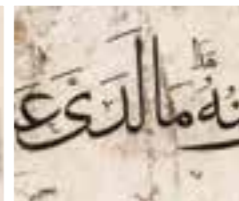 نُهُ مَا لَدَىَ عَ